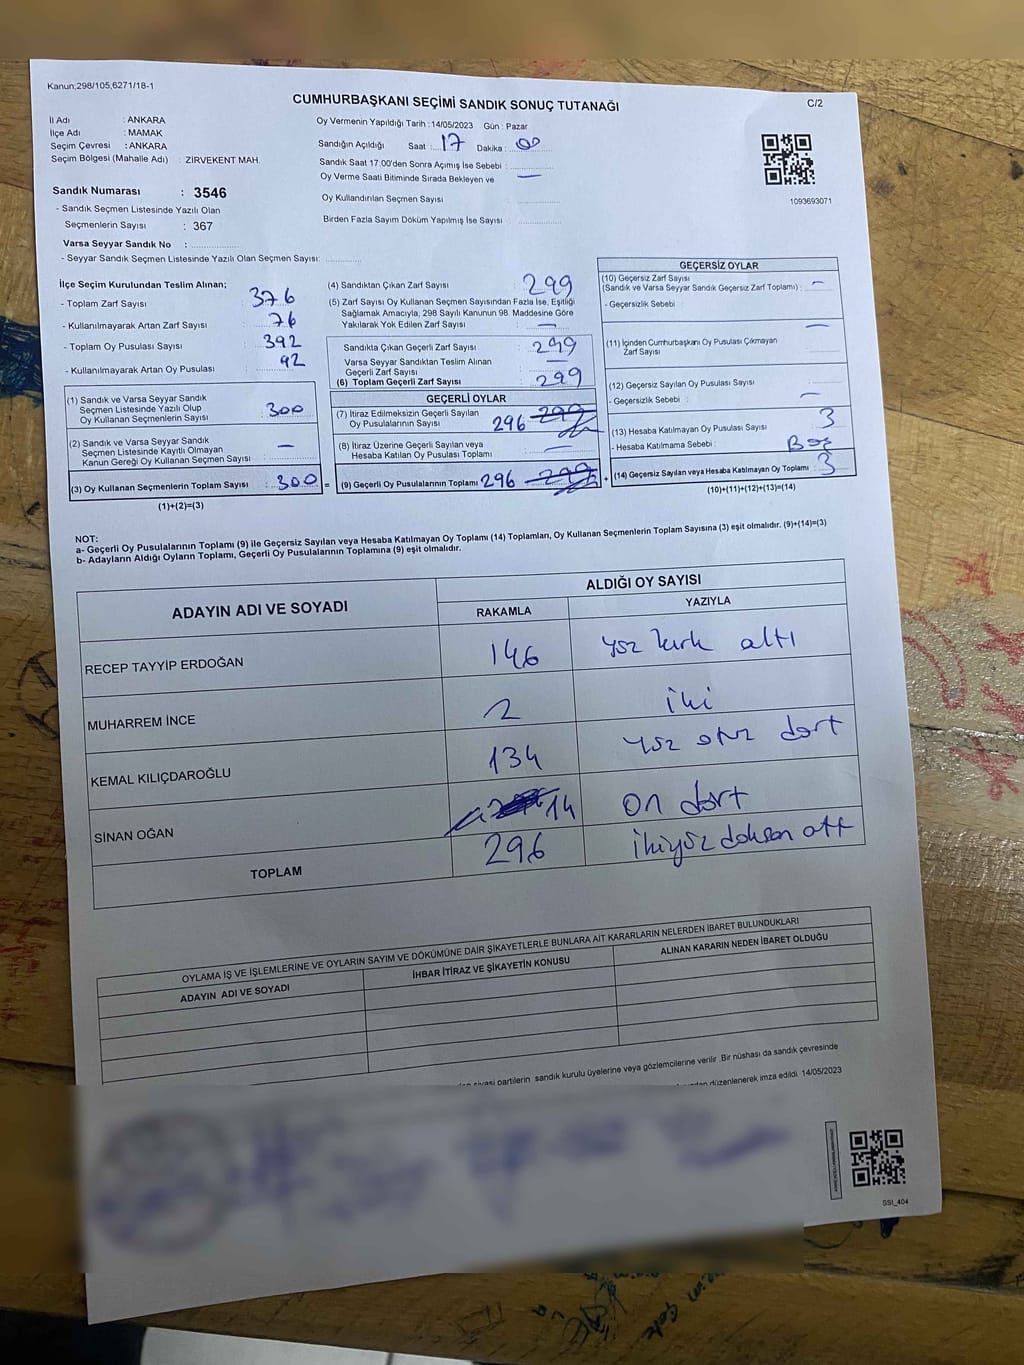 Kanun;298/105,6271/18-1
CUMHURBAŞKANI SEÇİMİ SANDIK SONUÇ TUTANAĞI
C/2
İl Adı : ANKARA
İlçe Adı : MAMAK
Seçim Çevresi : ANKARA
Seçim Bölgesi (Mahalle Adı) : ZİRVEKENT MAH.
Sandık Numarası : 3546
- Sandık Seçmen Listesinde Yazılı Olan
Seçmenlerin Sayısı : 367
Varsa Seyyar Sandık No :
- Seyyar Sandık Seçmen Listesinde Yazılı Olan Seçmen Sayısı:
Oy Vermenin Yapıldığı Tarih : 14/05/2023 Gün : Pazar
Sandığın Açıldığı Saat : 17 Dakika : 00
Sandık Saat 17.00'den Sonra Açımış İse Sebebi :
Oy Verme Saati Bitiminde Sırada Bekleyen ve —
Oy Kullandırılan Seçmen Sayısı
Birden Fazla Sayım Döküm Yapılmış İse Sayısı
1093693071
İlçe Seçim Kurulundan Teslim Alınan;
- Toplam Zarf Sayısı : 376
- Kullanılmayarak Artan Zarf Sayısı : 76
- Toplam Oy Pusulası Sayısı : 392
- Kullanılmayarak Artan Oy Pusulası : 92
(1) Sandık ve Varsa Seyyar Sandık
Seçmen Listesinde Yazılı Olup
Oy Kullanan Seçmenlerin Sayısı : 300
(2) Sandık ve Varsa Seyyar Sandık
Seçmen Listesinde Kayıtlı Olmayan
Kanun Gereği Oy Kullanan Seçmen Sayısı : —
(3) Oy Kullanan Seçmenlerin Toplam Sayısı : 300 =
(1)+(2)=(3)
(4) Sandıktan Çıkan Zarf Sayısı : 299
(5) Zarf Sayısı Oy Kullanan Seçmen Sayısından Fazla İse, Eşitliği
Sağlamak Amacıyla, 298 Sayılı Kanunun 98. Maddesine Göre
Yakılarak Yok Edilen Zarf Sayısı : —
Sandıkta Çıkan Geçerli Zarf Sayısı : 299
Varsa Seyyar Sandıktan Teslim Alınan
Geçerli Zarf Sayısı : —
(6) Toplam Geçerli Zarf Sayısı : 299
GEÇERLİ OYLAR
(7) İtiraz Edilmeksizin Geçerli Sayılan
Oy Pusulalarının Sayısı : 296 299
(8) İtiraz Üzerine Geçerli Sayılan veya
Hesaba Katılan Oy Pusulası Toplamı : —
(9) Geçerli Oy Pusulalarının Toplamı 296 299 +
GEÇERSİZ OYLAR
(10) Geçersiz Zarf Sayısı
(Sandık ve Varsa Seyyar Sandık Geçersiz Zarf Toplamı) : —
- Geçersizlik Sebebi :
—
(11) İçinden Cumhurbaşkanı Oy Pusulası Çıkmayan
Zarf Sayısı
(12) Geçersiz Sayılan Oy Pusulası Sayısı :
- Geçersizlik Sebebi : —
(13) Hesaba Katılmayan Oy Pusulası Sayısı : 3
- Hesaba Katılmama Sebebi : Boş
(14) Geçersiz Sayılan veya Hesaba Katılmayan Oy Toplamı : 3
(10)+(11)+(12)+(13)=(14)
NOT:
a- Geçerli Oy Pusulalarının Toplamı (9) ile Geçersiz Sayılan veya Hesaba Katılmayan Oy Toplamı (14) Toplamları, Oy Kullanan Seçmenlerin Toplam Sayısına (3) eşit olmalıdır. (9)+(14)=(3)
b- Adayların Aldığı Oyların Toplamı, Geçerli Oy Pusulalarının Toplamına (9) eşit olmalıdır.
ADAYIN ADI VE SOYADI
ALDIĞI OY SAYISI
RAKAMLA
YAZIYLA
RECEP TAYYİP ERDOĞAN 146 yüz kırk altı
MUHARREM İNCE 2 iki
KEMAL KILIÇDAROĞLU 134 yüz otuz dört
SİNAN OĞAN 14 on dört
TOPLAM 296 ikiyüz doksan altı
OYLAMA İŞ VE İŞLEMLERİNE VE OYLARIN SAYIM VE DÖKÜMÜNE DAİR ŞİKAYETLERLE BUNLARA AİT KARARLARIN NELERDEN İBARET BULUNDUKLARI
ADAYIN ADI VE SOYADI
İHBAR İTİRAZ VE ŞİKAYETİN KONUSU
ALINAN KARARIN NEDEN İBARET OLDUĞU
siyasi partilerin sandık kurulu üyelerine veya gözlemcilerine verilir .Bir nüshası da sandık çevresinde
düzenlenerek imza edildi 14/05/2023
SSI_404